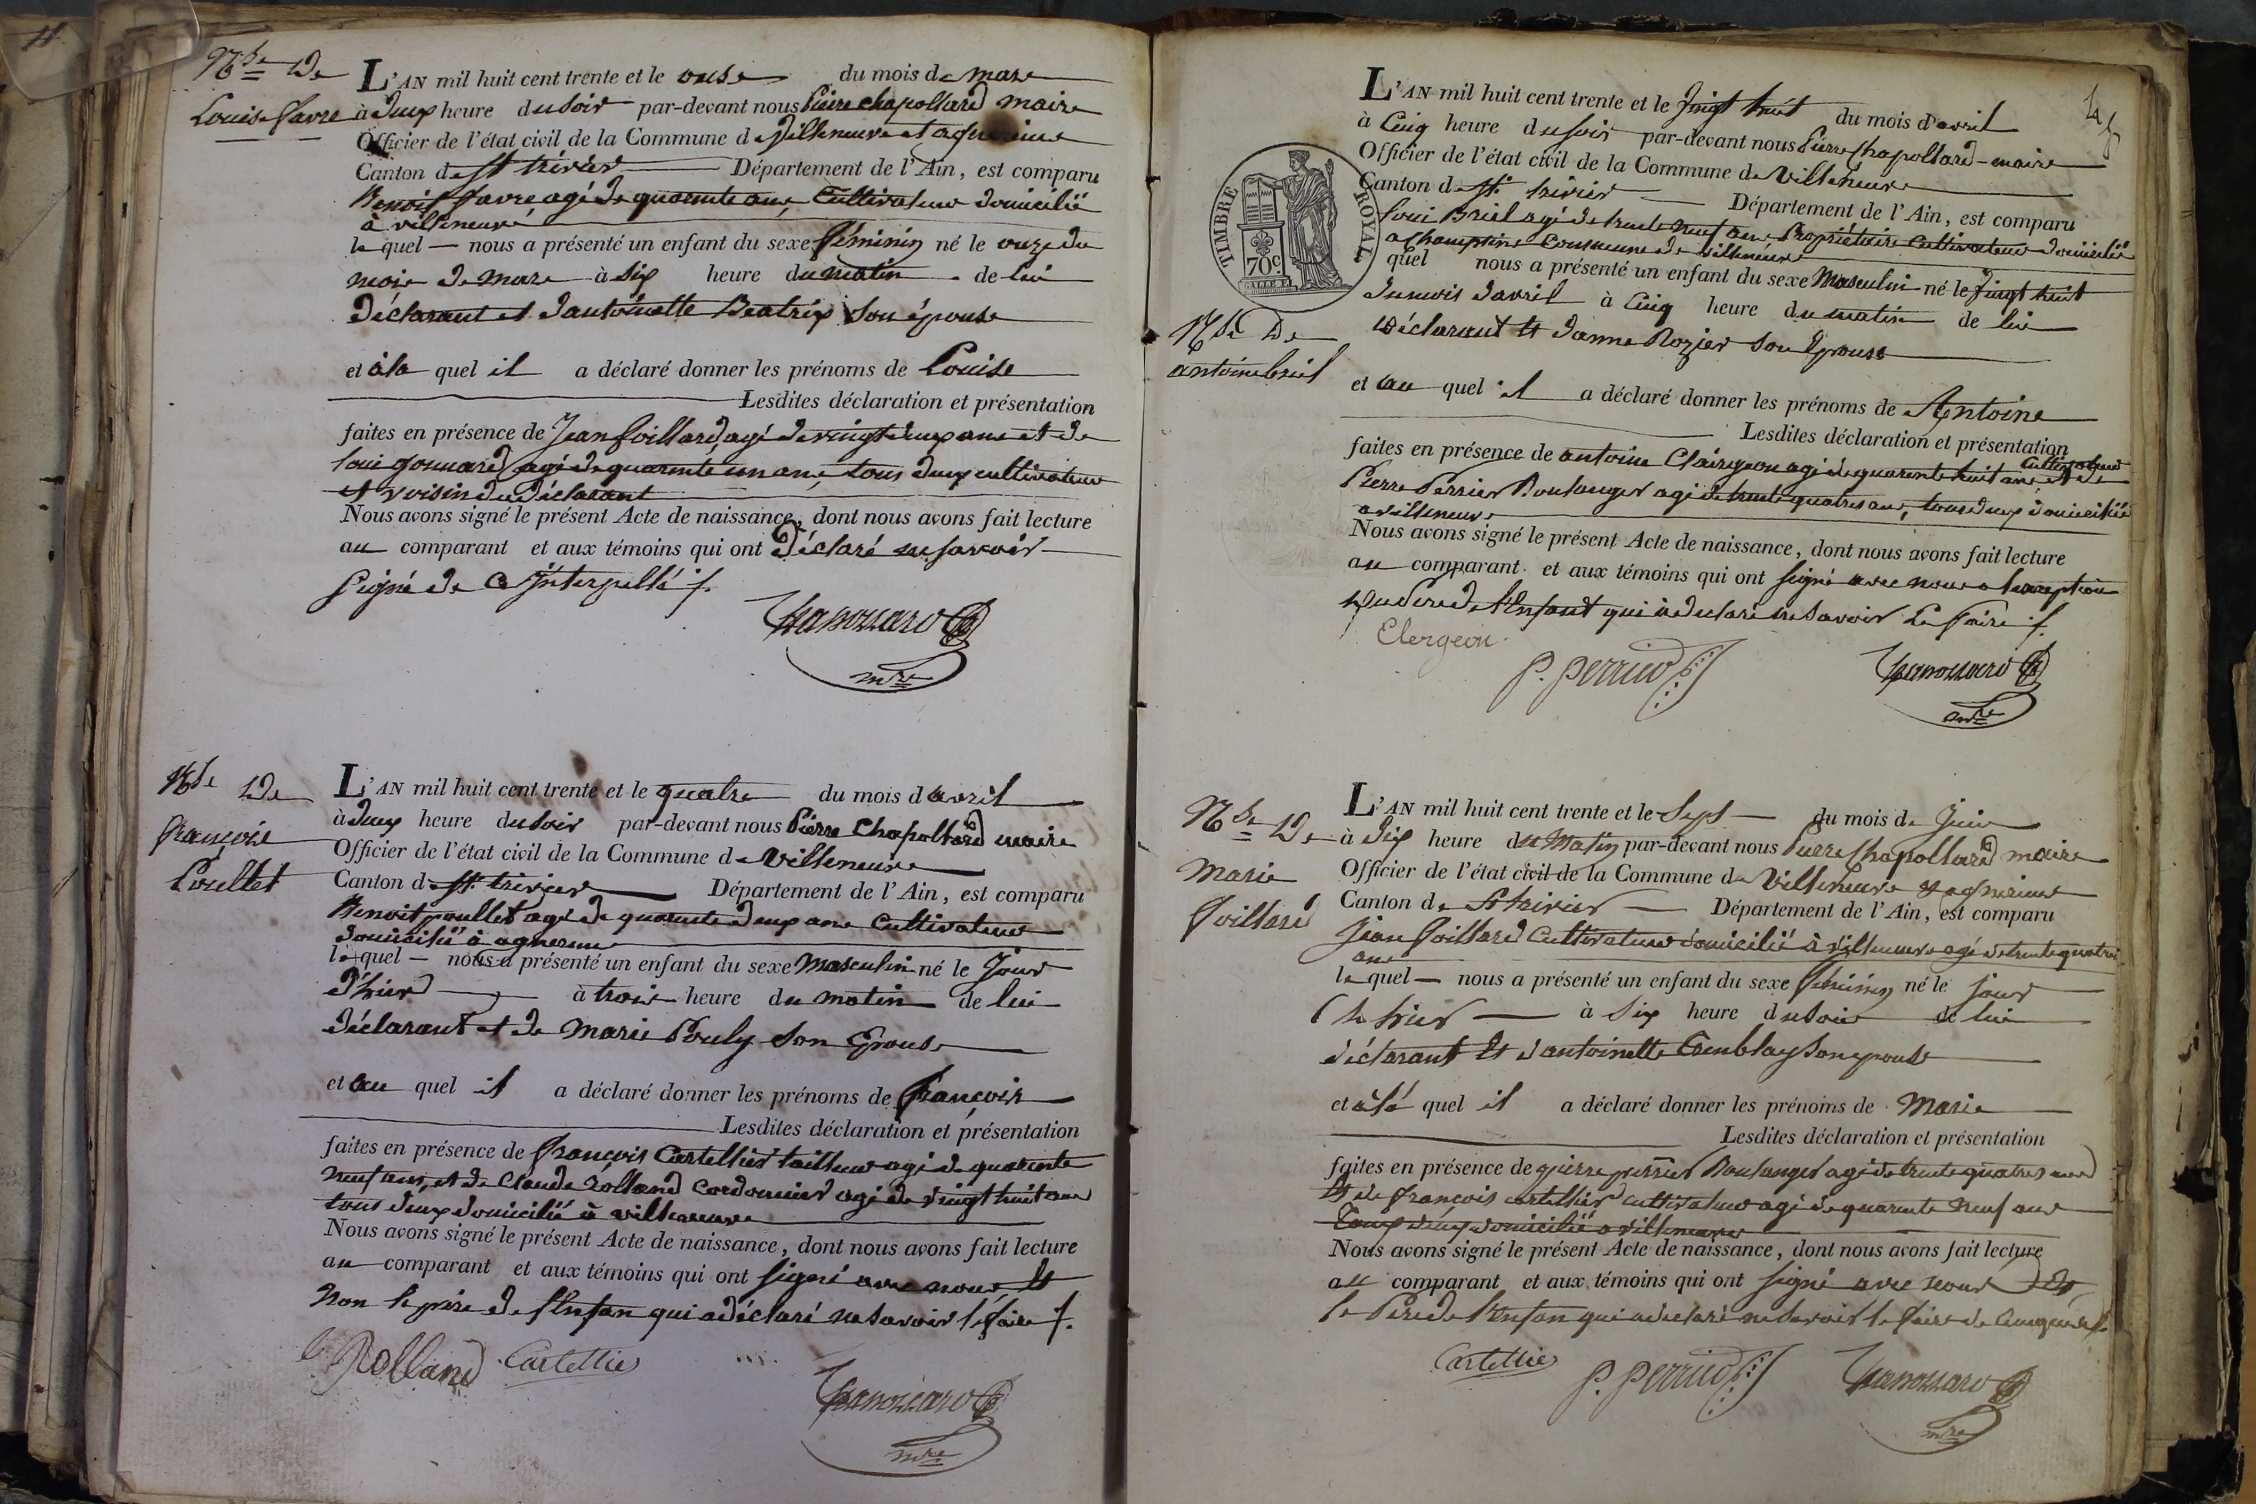 Nce De
Louise Favre
L'AN mil huit cent trente et le onze du mois de mars
à deux heure du soir par-devant nous Pierre Chapollard maire
Officier de l'état civil de la Commune de Villeneuve et agnereins
Canton de St trivier Département de l'Ain, est comparu
Benoit favre agé de quarante ans, Cultivateur domicilié
à villeneuve
le quel nous a présenté un enfant du sexe féminin né le onze du
mois de mars à Six heure du matin de lui
déclarant et d'antoinette Beatrix Son épouse
et à la quel il a déclaré donner les prénoms de Louise
Lesdites déclaration et présentation
faites en présence de Jean foillard, agé de vingt deux ans et de
loui gonnard agé de quarante un ans, tous deux cultivateur
et voisin du déclarant
Nous avons signé le présent Acte de naissance, dont nous avons fait lecture
au comparant et aux témoins qui ont déclaré ne savoir
Signé de Ce Interpellé
Chapollard
mre
Nce De
françois
Poullet
L'AN mil huit cent trente et le quatre du mois d avril
à deux heure du soir par-devant nous Pierre Chapollard maire
Officier de l'état civil de la Commune de Villeneuve
Canton de St trivier Département de l'Ain, est comparu
Benoit poullet agé de quarante deux ans Cultivateur
domicilié à agnereins
le quel nous a présenté un enfant du sexe Masculin né le Jour
d'hier à trois heure du matin de lui
déclarant et de Marie Pouly Son Epouse
et au quel il a déclaré donner les prénoms de françois
Lesdites déclaration et présentation
faites en présence de françois Cartellier tailleur agé de quarente
neuf ans, et de Claude rolland Cordonnier agé de vingt huit ans
tous deux domicilié à villeneuve
Nous avons signé le présent Acte de naissance, dont nous avons fait lecture
au comparant et aux témoins qui ont signé avec nous et
Non le père de l'Enfan qui a déclaré ne savoir le faire
Rolland Cartellier
Chapollard
mre
TIMBRE ROYAL
70c
L'AN mil huit cent trente et le Vingt huit du mois d'avril
à Cinq heure du soir par-devant nous Pierre Chapollard maire
Officier de l'état civil de la Commune de Villeneuve
Canton de St trivier Département de l'Ain, est comparu
loui Briel agé de trente neuf ans Propriétaire Cultivateur domicilié
a Champtine Commune de villeneuve
quel nous a présenté un enfant du sexe Masculin né le Vingt huit
du mois d'avril à Cinq heure du matin de lui
Déclarant et d'anne Rozier Son Epouse
Nce De
antoine briel
et au quel il a déclaré donner les prénoms de Antoine
Lesdites déclaration et présentation
faites en présence de antoine Clairgeon agé de quarente huit ans Cultivateur et de
Pierre Perrier Boulanger agé de trente quatres ans, tous deux domicilié
a villeneuve
Nous avons signé le présent Acte de naissance, dont nous avons fait lecture
au comparant et aux témoins qui ont signé avec nous a lexception
du Pere de l'Enfant qui à déclaré ne savoir Le faire
Clergeon
P. perrier
Chapollard
mre
Nce De
Marie
foillard
L'AN mil huit cent trente et le Sept du mois de Juin
à dix heure du Matin par-devant nous Pierre Chapollard maire
Officier de l'état civil de la Commune de Villeneuve et agnereins
Canton de St trivier Département de l'Ain, est comparu
Jean foillard Cultivateur domicilié à villeneuve agé de trente quatre
ans
le quel nous a présenté un enfant du sexe féminin né le jour
d'hier à Six heure du soir de lui
déclarant et d'antoinette Comblay Son epouse
et à la quel il a déclaré donner les prénoms de Marie
Lesdites déclaration et présentation
faites en présence de pierre perrier Boulanger agé de trente quatres ans
et de françois cartellier cultivateur agé de quarente neuf ans
tous deux domicilié a villeneuve
Nous avons signé le présent Acte de naissance, dont nous avons fait lecture
au comparant et aux témoins qui ont signé avec nous
le Pere de l'Enfan qui a déclaré ne savoir le faire de
Cartellier P. perrier
Chapollard
mre